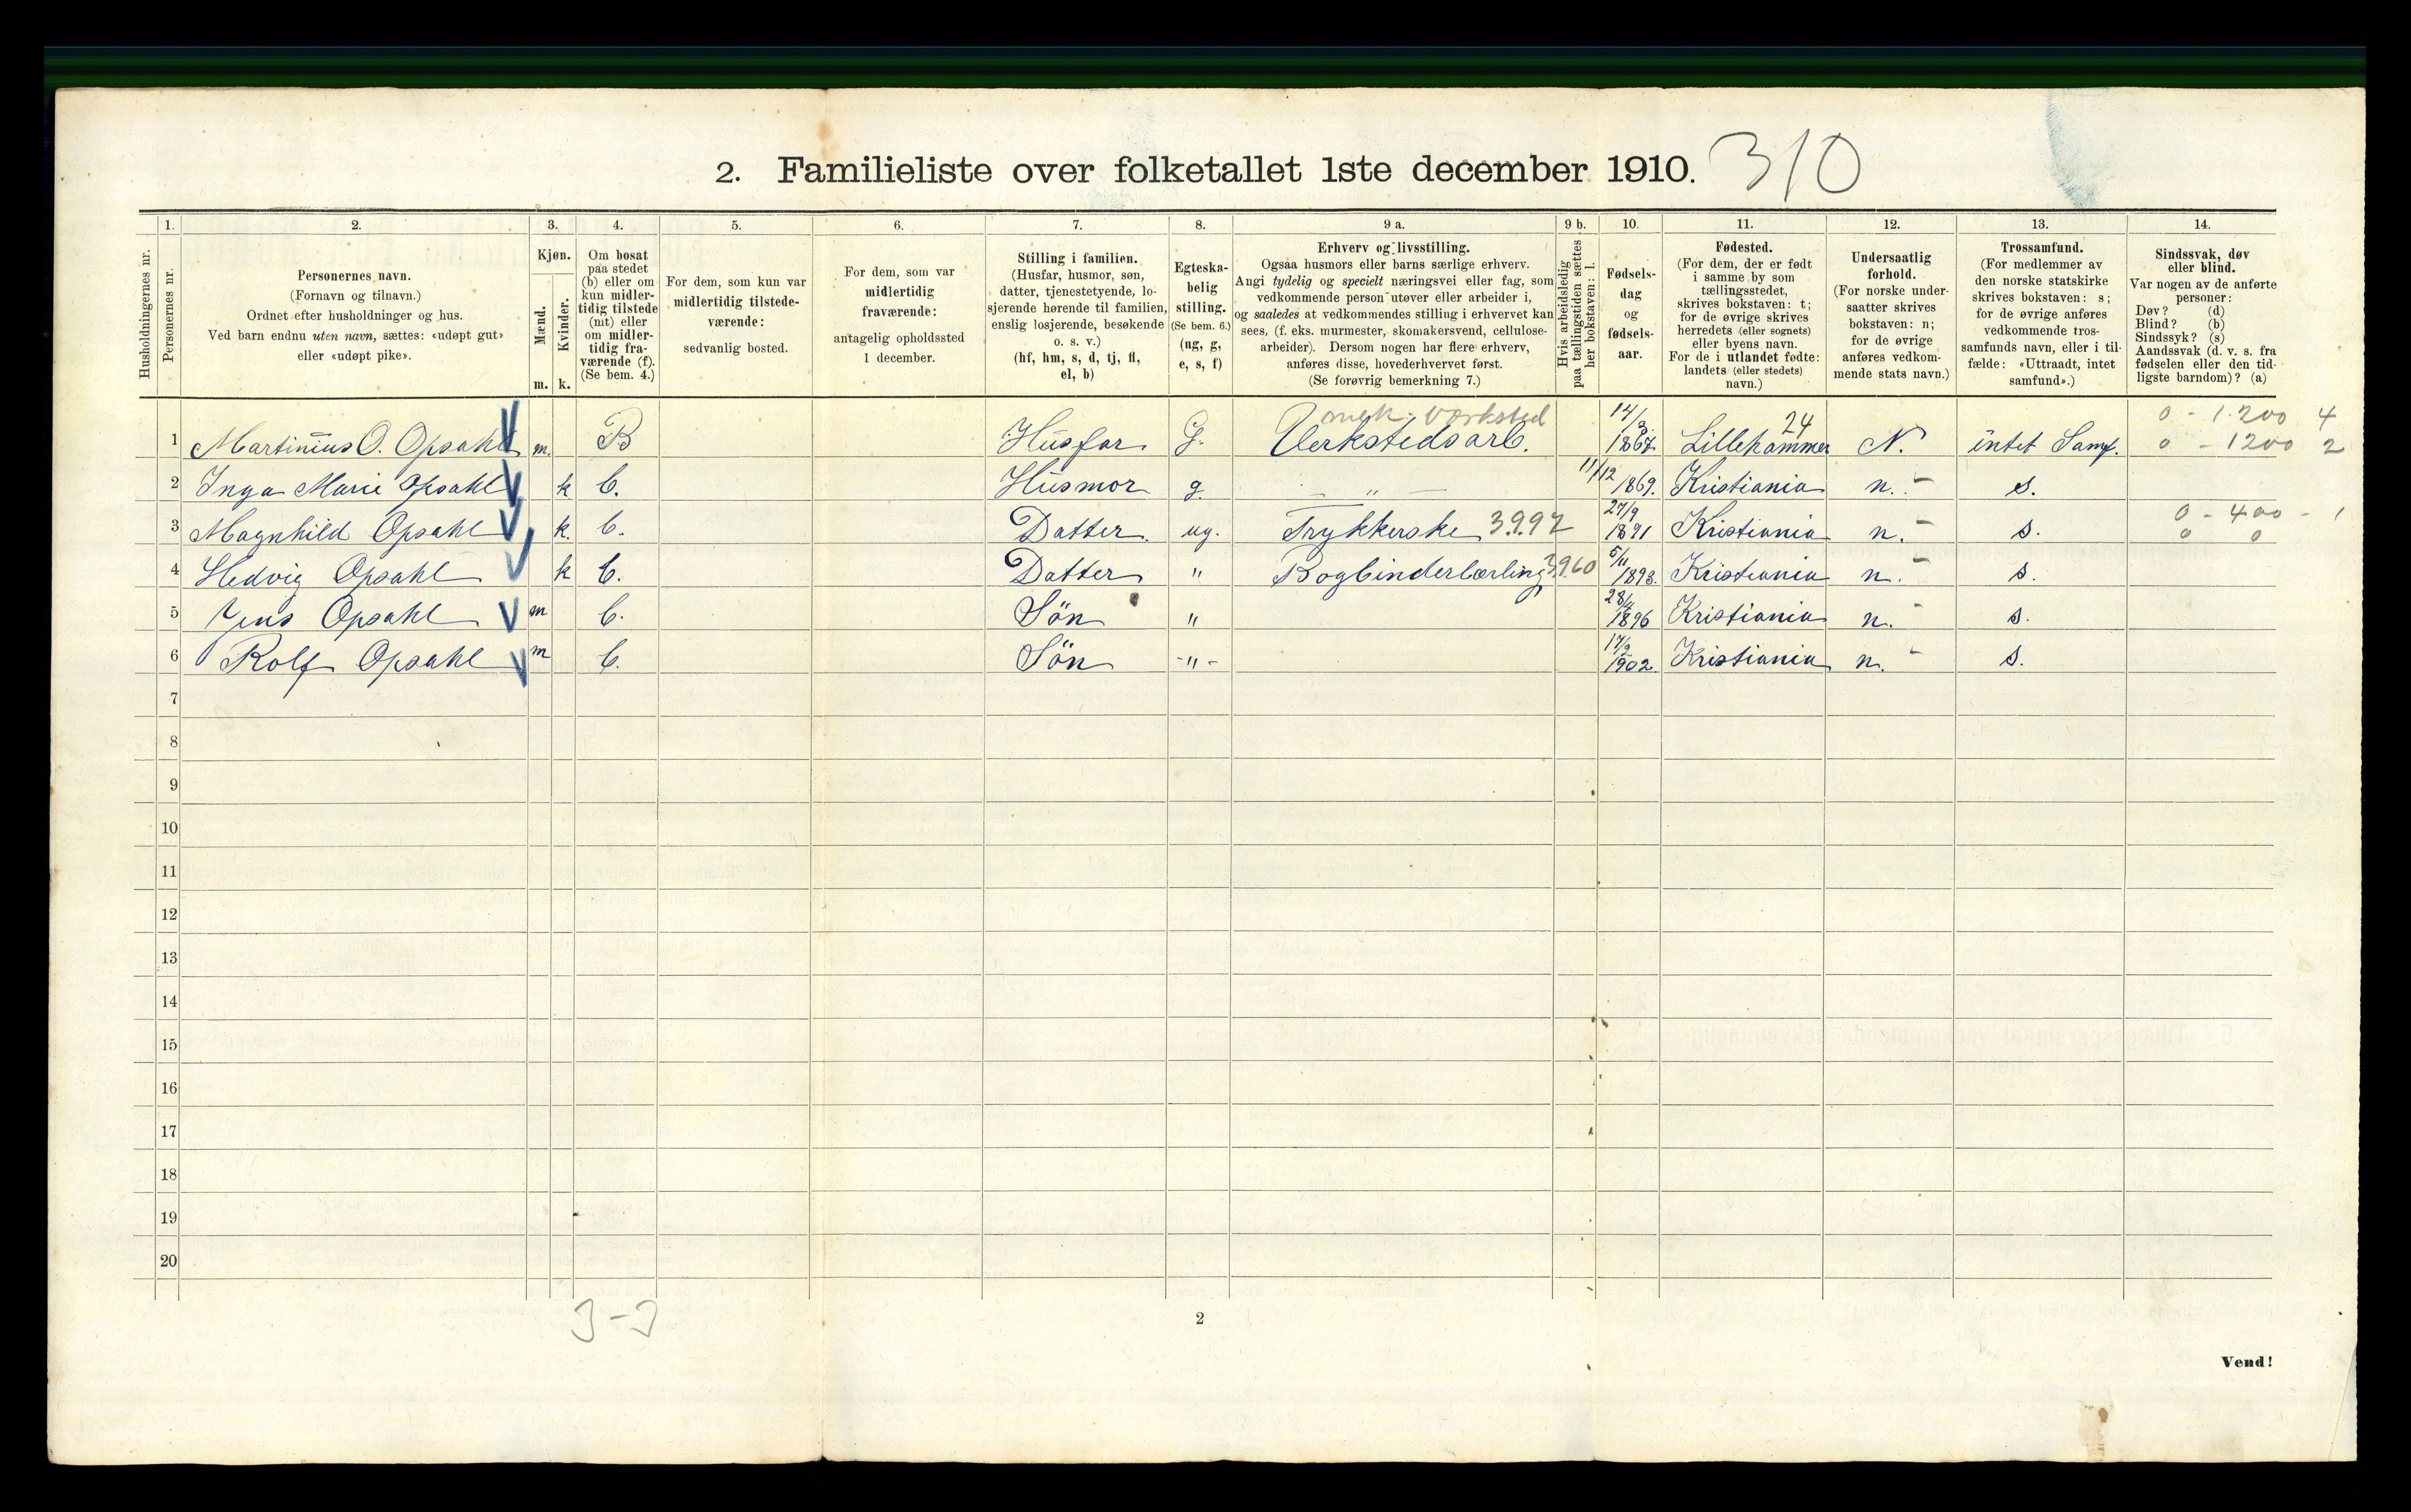 2. Familieliste over folketallet 1ste december 1910. 310
Husholdningernes nr.
1.
Personernes nr.
2.
Personernes navn.
(Fornavn og tilnavn.)
Ordnet efter husholdninger og hus.
Ved barn endnu uten navn, sættes: «udøpt gut»
eller «udøpt pike».
3.
Kjøn.
Mænd.
m.
Kvinder.
k.
4.
Om bosat
paa stedet
(b) eller om
kun midler-
tidig tilstede
(mt) eller
om midler-
tidig fra-
værende (f).
(Se bem. 4.)
5.
For dem, som kun var
midlertidig tilstede-
værende:
sedvanlig bosted.
6.
For dem, som var
midlertidig
fraværende:
antagelig opholdssted
1 december.
7.
Stilling i familien.
(Husfar, husmor, søn,
datter, tjenestetyende, lo-
sjerende hørende til familien,
enslig losjerende, besøkende
o. s. v.)
(hf, hm, s, d, tj, fl,
el, b)
8.
Egteska-
belig
stilling.
(Se bem. 6.)
(ug, g,
e, s, f)
9 a.
Erhverv og livsstilling.
Ogsaa husmors eller barns særlige erhverv.
Angi tydelig og specielt næringsvei eller fag, som
vedkommende person utøver eller arbeider i,
og saaledes at vedkommendes stilling i erhvervet kan
sees, (f. eks. murmester, skomakersvend, cellulose-
arbeider). Dersom nogen har flere erhverv,
anføres disse, hovederhvervet først.
(Se forøvrig bemerkning 7.)
9 b.
Hvis arbeidsledig
paa tællingstiden sættes
her bokstaven: l.
10.
Fødsels-
dag
og
fødsels-
aar.
11.
Fødested.
(For dem, der er født
i samme by som
tællingsstedet,
skrives bokstaven: t;
for de øvrige skrives
herredets (eller sognets)
eller byens navn.
For de i utlandet fødte:
landets (eller stedets)
navn.)
12.
Undersaatlig
forhold.
(For norske under-
saatter skrives
bokstaven: n;
for de øvrige
anføres vedkom-
mende stats navn.)
13.
Trossamfund.
(For medlemmer av
den norske statskirke
skrives bokstaven: s;
for de øvrige anføres
vedkommende tros-
samfunds navn, eller i til-
fælde: «Uttraadt, intet
samfund».)
14.
Sindssvak, døv
eller blind.
Var nogen av de anførte
personer:
Døv? (d)
Blind? (b)
Sindssyk? (s)
Aandssvak (d. v. s. fra
fødselen eller den tid-
ligste barndom)? (a)
mek. Værksted 14/3 24 0 - 1.200 4
1 Martinius O. Opsahl m. B Husfar G. Verkstedsarb. 1867 Lillehammer N. intet Samf. 0 - 1200 2
2 Inga Marie Opsahl k b. Husmor g. — „ — 11/12 1869. Kristiania n. - s.
27/9 0 - 400 - 1
3 Magnhild Opsahl k. b. Datter ug. Trykkerske 3.9.97 1891 Kristiania n. - s. 0 0
4 Hedvig Opsahl k b. Datter " Bogbinderlærling 3960 5/11 1893. Kristiania n. - s.
5 Jens Opsahl m b. Sön " 28/4 1896 Kristiania n. - s.
6 Rolf Opsahl m b. Sön -"- 17/2 1902. Kristiania n. - s.
7
8
9
10
11
12
13
14
15
16
17
18
19
20
3-3
2
Vend!